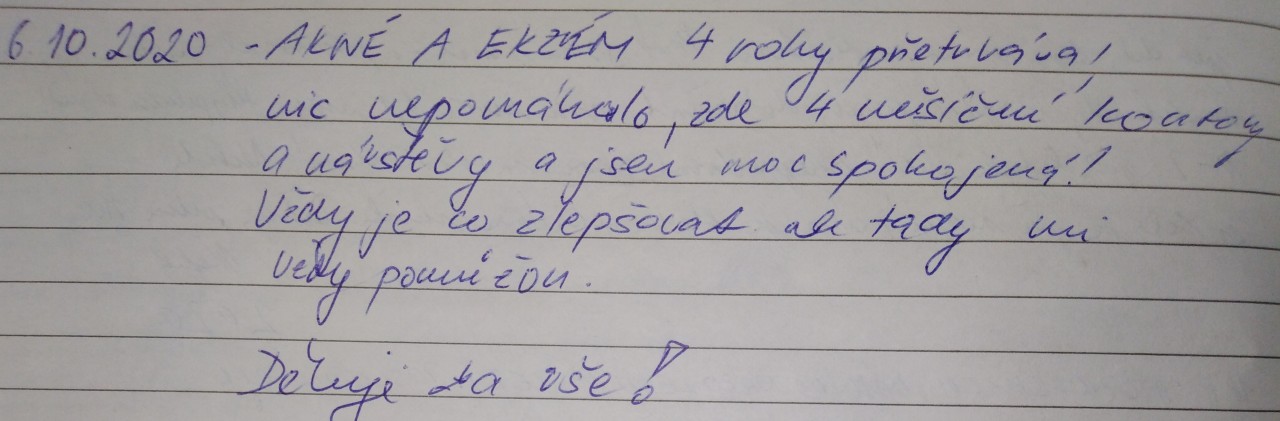 6.10.2020 - AKNÉ A EKZÉM 4 roky přetrvává!
nic nepomáhalo, zde 4 měsíční kontroly
a návštěvy a jsem moc spokojená!
Vždy je co zlepšovat ale tady mi
vždy pomůžou.
Děkuji za vše!